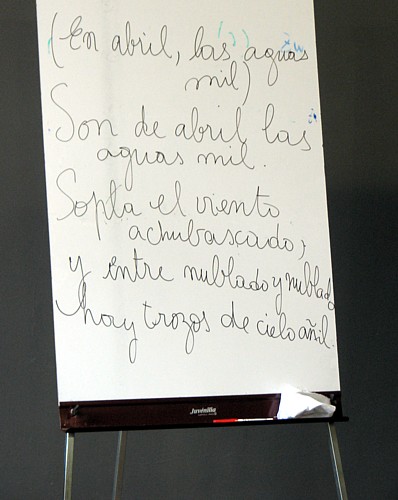 (En abril, las aguas
mil)
Son de abril las
aguas mil.
Sopla el viento
achubascado,
y entre nublado y nublado
hay trozos de cielo añil.
Juvinilia